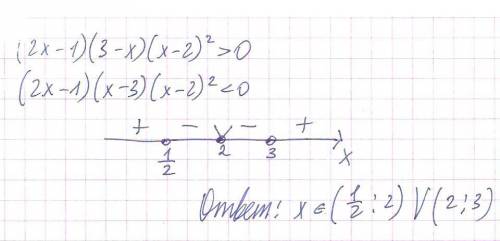 (2x-1)(3-x)(x-2)²>0
(2x-1)(x-3)(x-2)²<0
+ - - +
1/2 2 3 x
Ответ: x ∈ (1/2; 2) ∪ (2; 3)